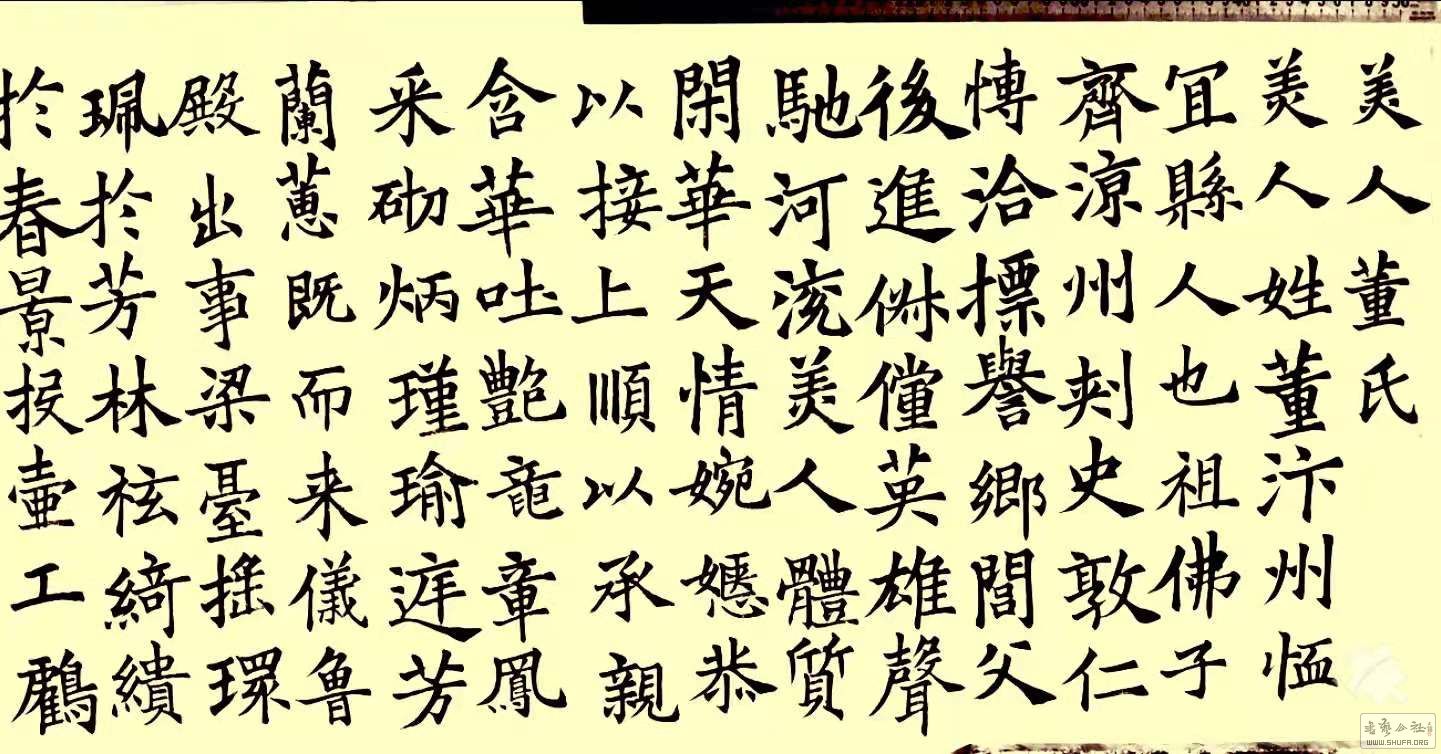 美人董氏
美人姓董汴州恤
冝縣人也祖佛子
齊涼州刾史敦仁
愽洽摽譽鄉閭父
後進俶儻英雄聲
馳河渷美人體質
閑華天情婉嫕恭
以接上順以承親
含華吐艷龍章鳳
采砌炳瑾瑜庭芳
蘭蕙既而来儀魯
殿出事梁臺搖環
珮於芳林袨綺繢
於春景投壷工鸖
書學公社
WWW.SHUFA.ORG